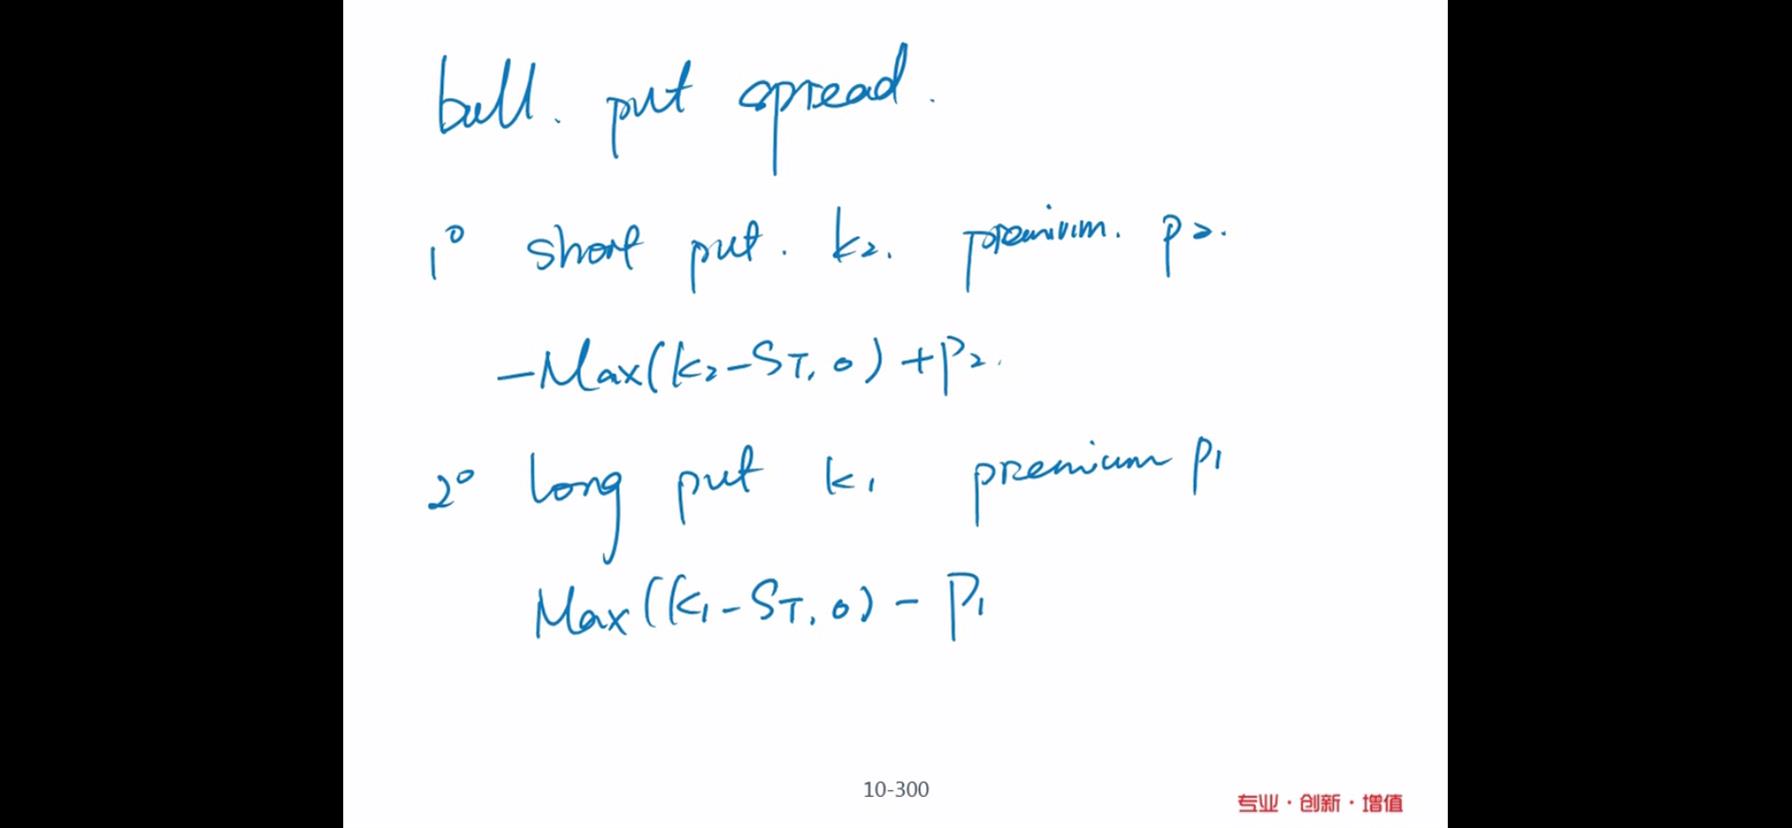 bull. put spread.
1° short put. k₂. premium. p₂.
-Max(k₂-S_T, 0) + P₂.
2° long put k₁ premium p₁
Max(k₁-S_T, 0) - P₁
10-300
专业·创新·增值